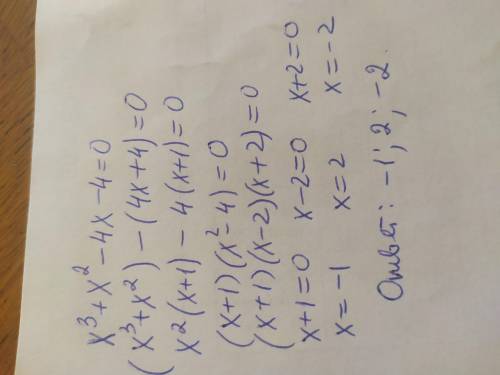 x³+x²-4x-4=0
(x³+x²)-(4x+4)=0
x²(x+1)-4(x+1)=0
(x+1)(x²-4)=0
(x+1)(x-2)(x+2)=0
x+1=0 x-2=0 x+2=0
x=-1 x=2 x=-2
Ответ: -1; 2; -2.